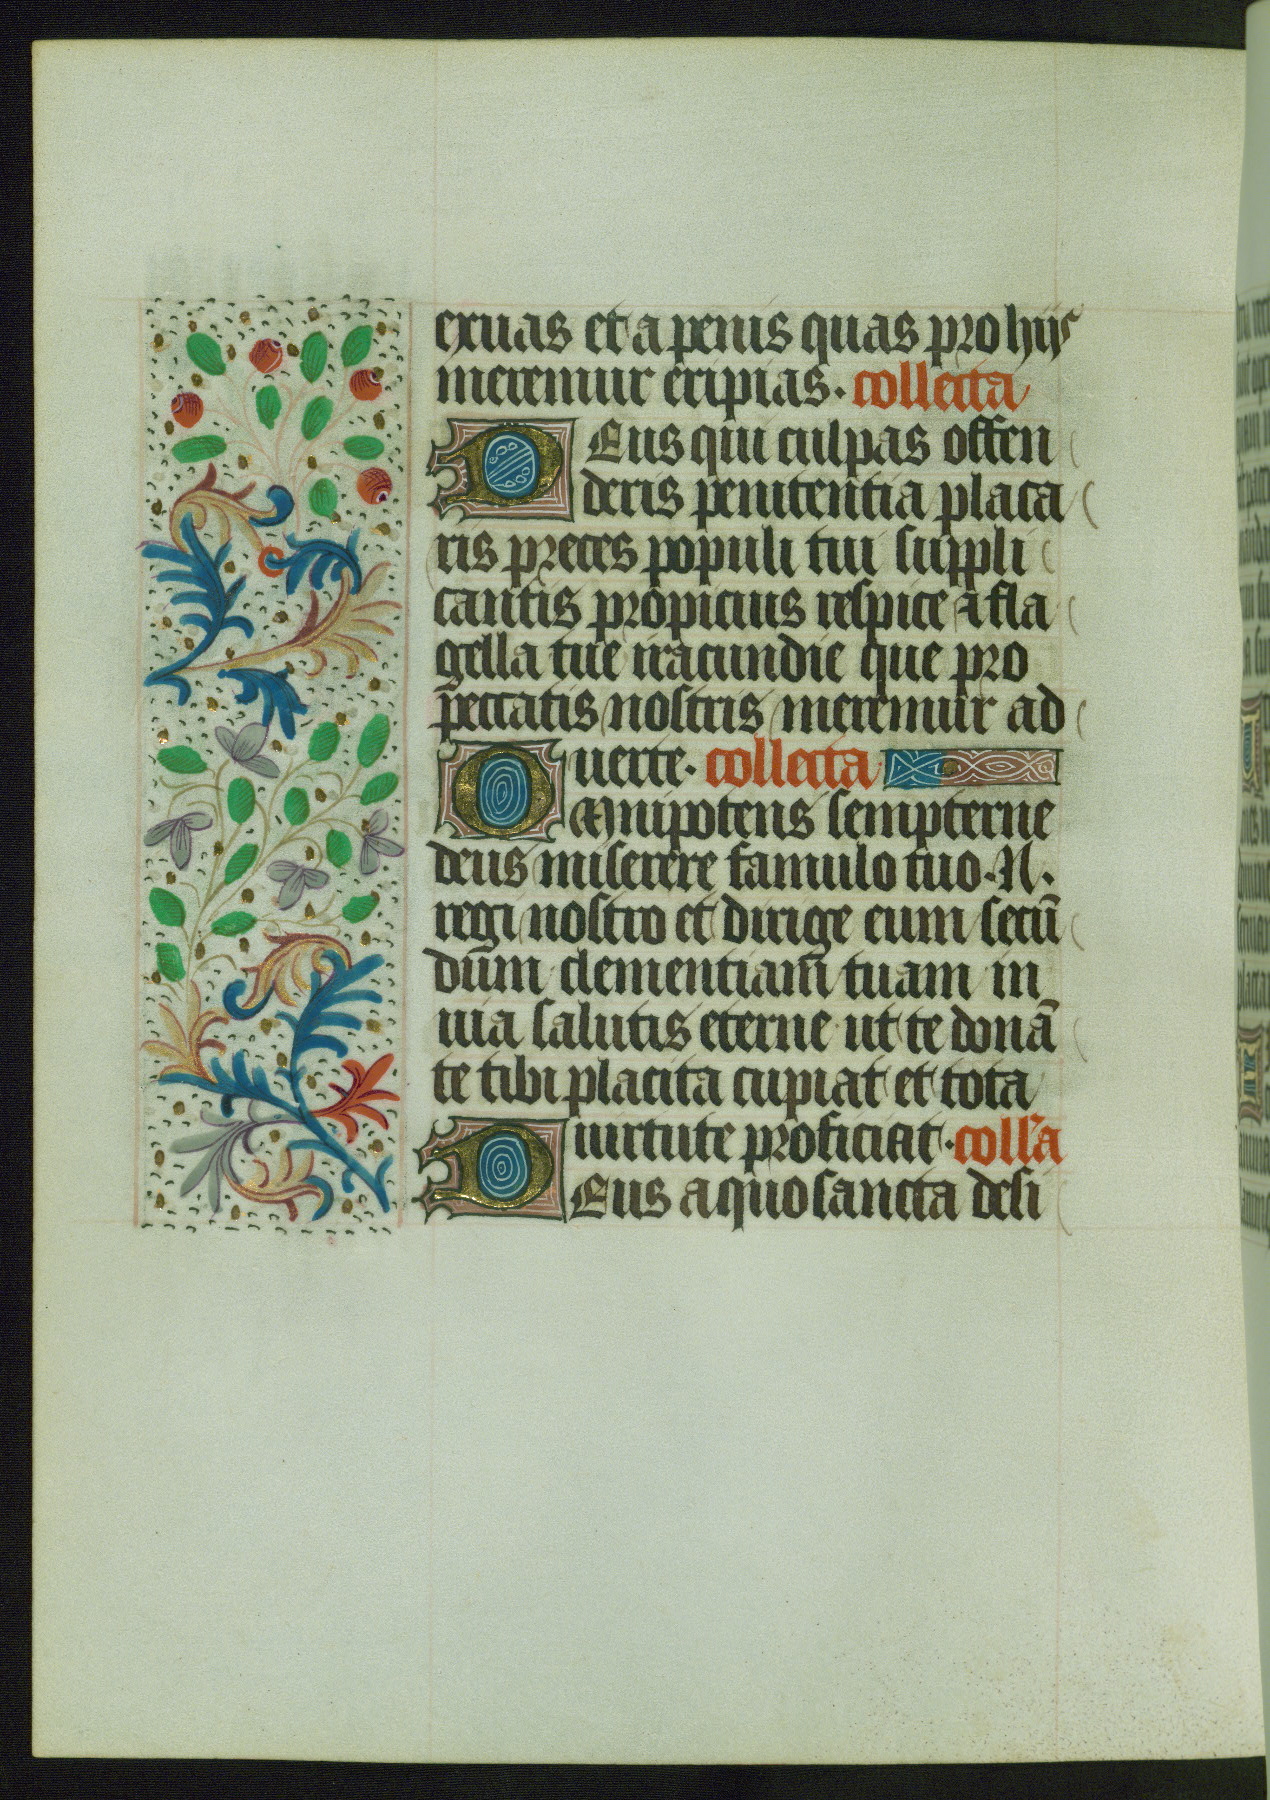 exuas et a penis quas pro hijs
meremur eripias. collecta
Deus qui culpas offen
deris penitentia placa
ris preces populi tui suppli
cantis propicius respice & fla
gella tue iracundie que pro
peccatis nostris meremur ad
uerte. collecta
Omnipotens sempterne
deus miserere famulo tuo. N.
regi nostro et dirige eum secū
dum clementiam tuam in
uia salutis eterne ut te donā
te tibi placita cupiat et tota
uirtute proficiat. coll'a
Deus a quo sancta desi